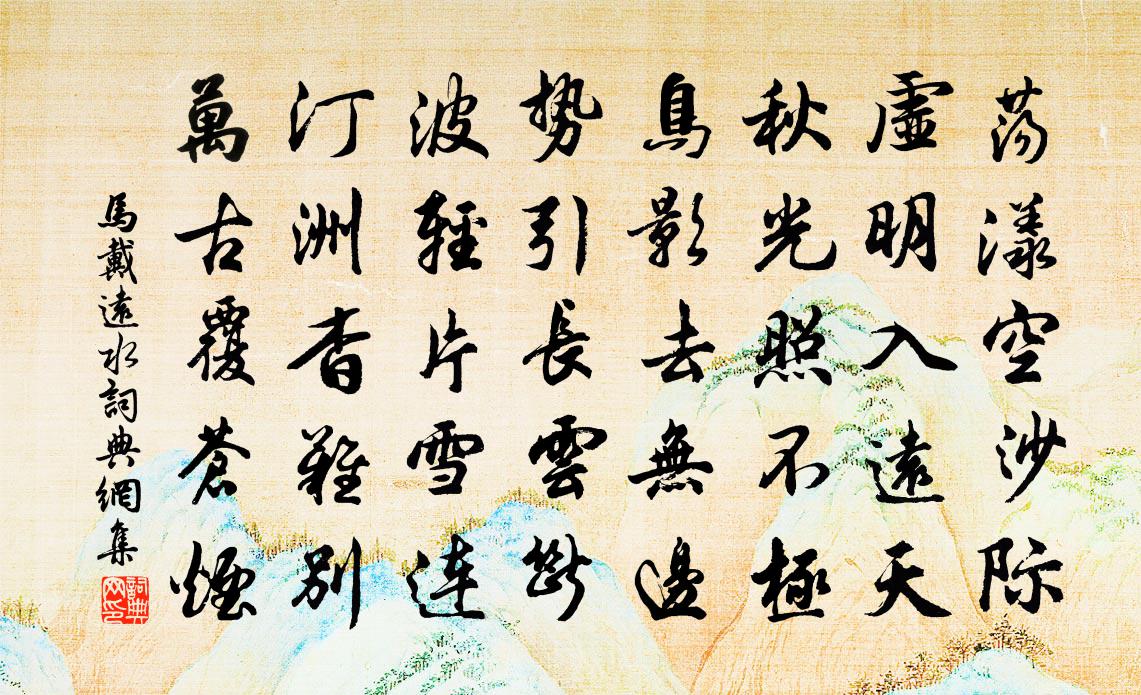 荡漾空沙际
虛明入遠天
秋光照不極
鳥影去無邊
势引長雲斷
波輕片雪連
汀洲杳難別
萬古覆蒼煙
馬戴遠水詞典網集
詞典网印